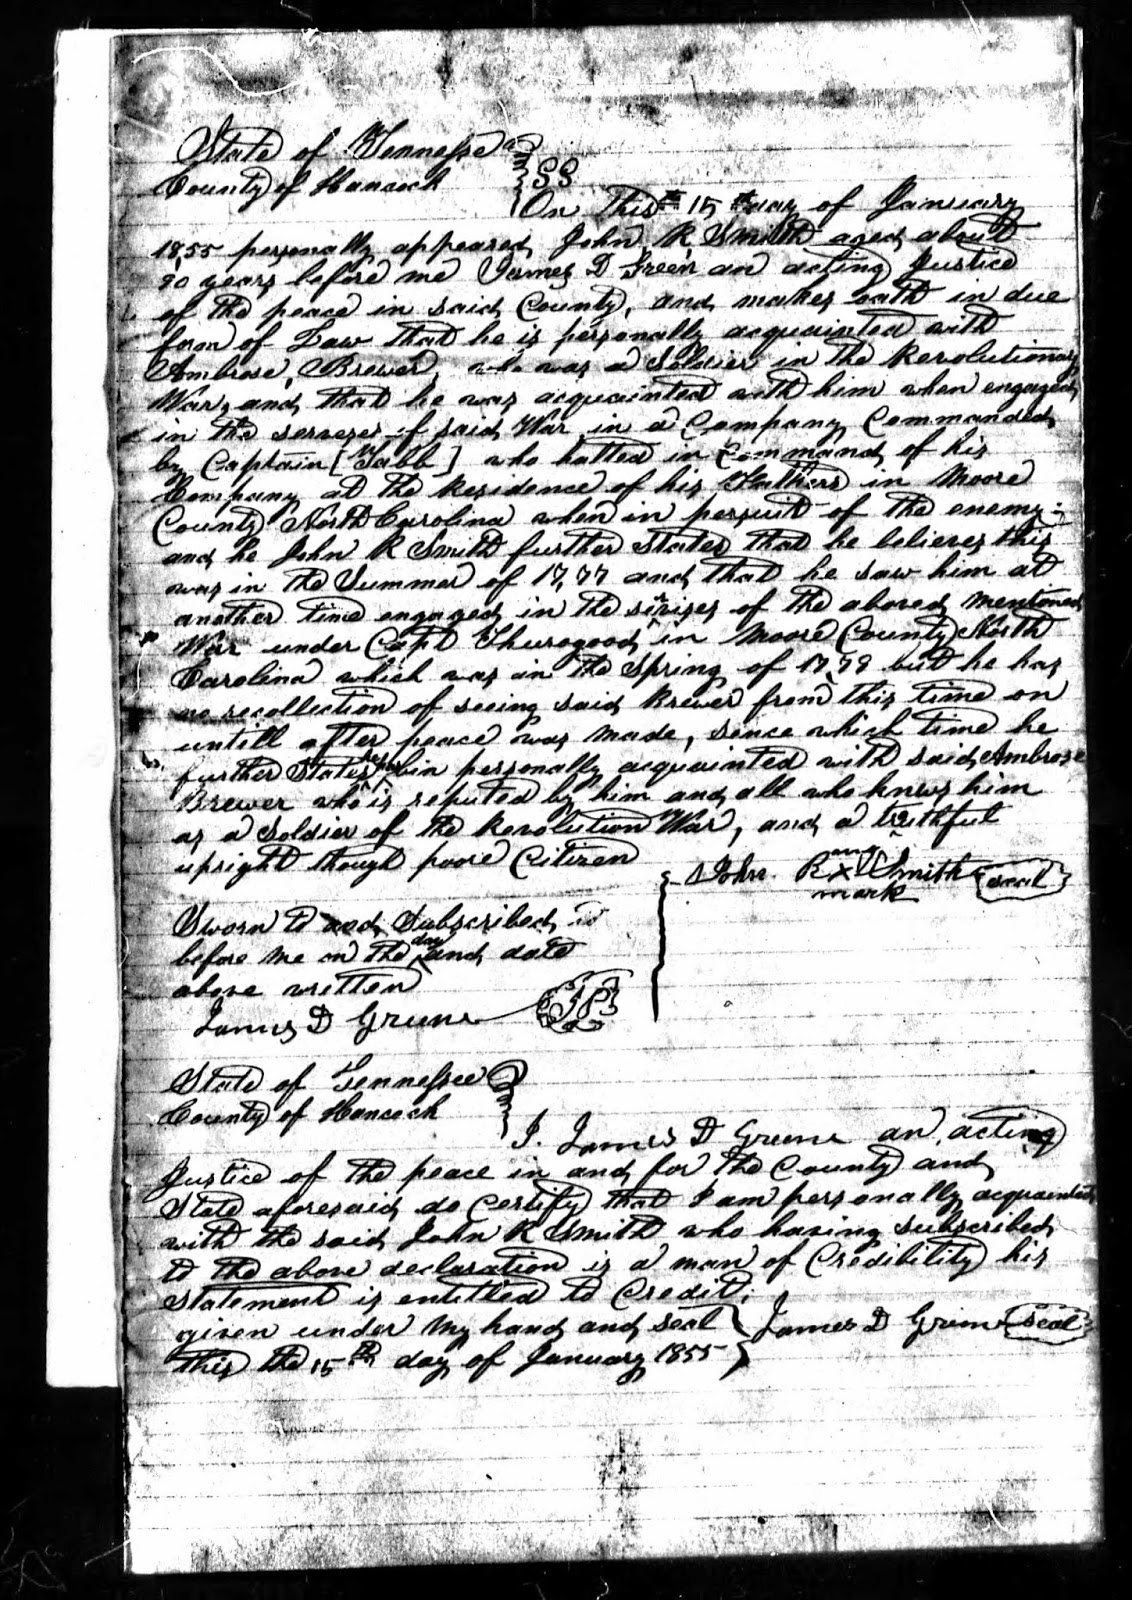 State of Tennessee
County of Hancock } SS
On this 15 day of January
1855 personally appeared John R Smith aged about
90 years before me James D Green an acting Justice
of the peace in said County, and makes oath in due
form of Law that he is personally acquainted with
Ambrose, Brewer, who was a Soldier in the Revolutionary
War, and that he was acquainted with him when engaged
in the serveses of said War in a Company Commanded
by Captain [Gabb] who halted in Command of his
Company at the Residence of his Fathers in Moore
County North Carolina when in persuit of the enemy;
and he John R Smith further states that he believes this
was in the Summer of 1777 and that he saw him at
another time engaged in the servises of the aboved mentioned
War under Capt Thurogood in Moore County North
Carolina which was in the Spring of 1779 but he has
no recollection of seeing said Brewer from this time on
untill after peace was made, sence which time he
further States has bin personally acquainted with said Ambrose
Brewer who is reputed by him and all who knows him
as a Soldier of the Revolution War, and a truthful
upright though poore Citizen
John R X Smith seal
mark
Sworn to and Subscribed to
before me on the day and date
above written
James D Greene JP
State of Tennessee
County of Hancock
I. James D Greene an acting
Justice of the peace in and for the County and
State aforesaid do Certify that I am personally acquainted
with the said John R Smith who having subscribed
to the above declaration is a man of Credibility his
statement is entitled to Credit;
given under my hand and seal } James D Greene seal
this the 15th day of January 1855